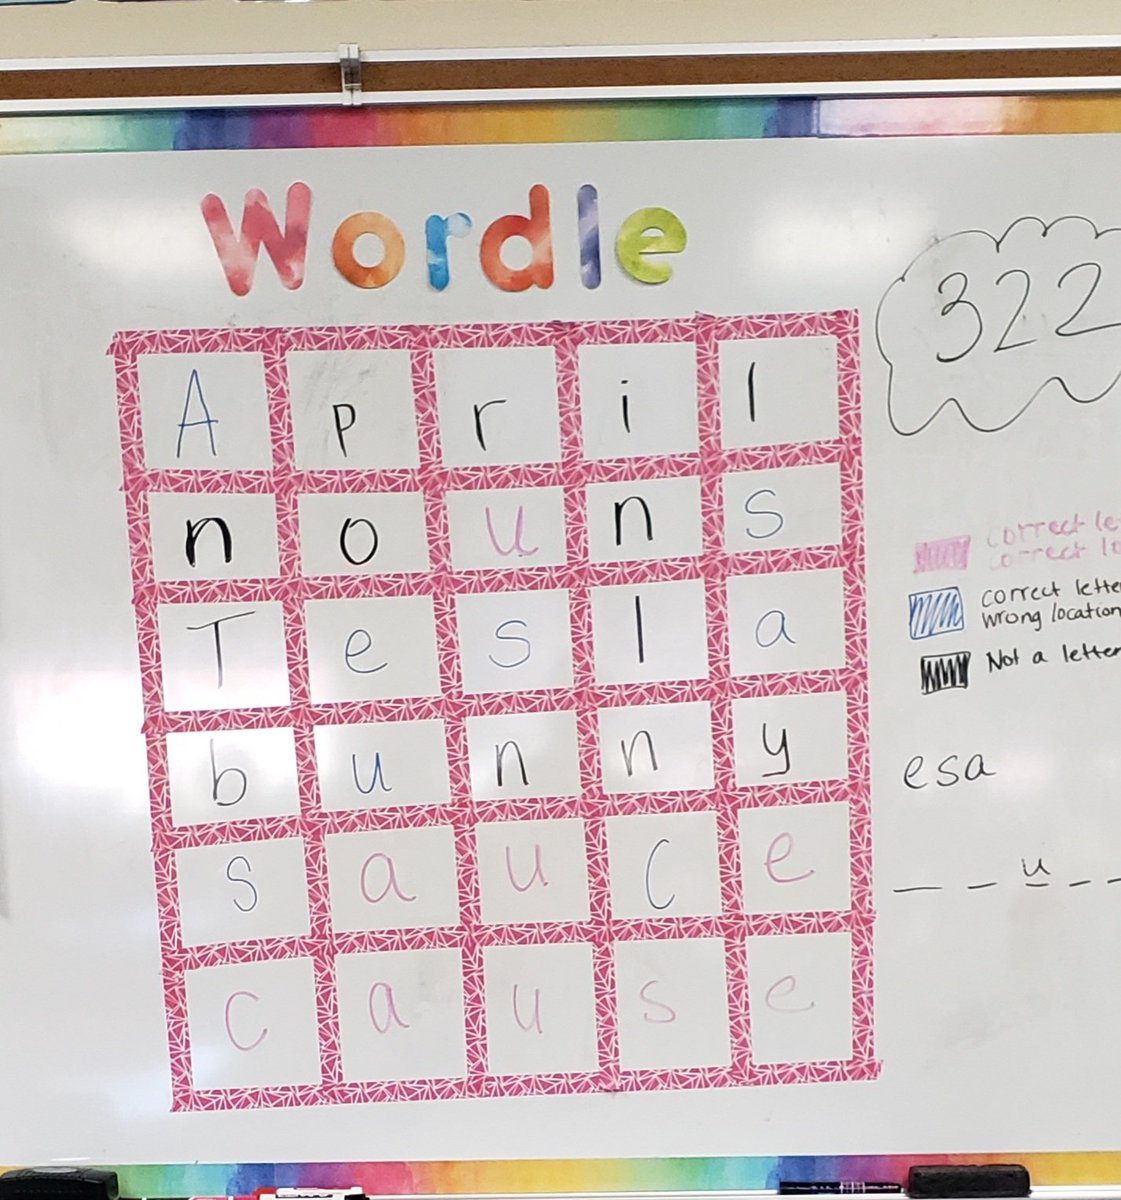 Wordle
322
A p r i l
n o u n s
T e s l a
b u n n y
s a u c e
c a u s e
correct le
correct lo
correct lette
wrong location
Not a letter
esa
_ _ u _ _